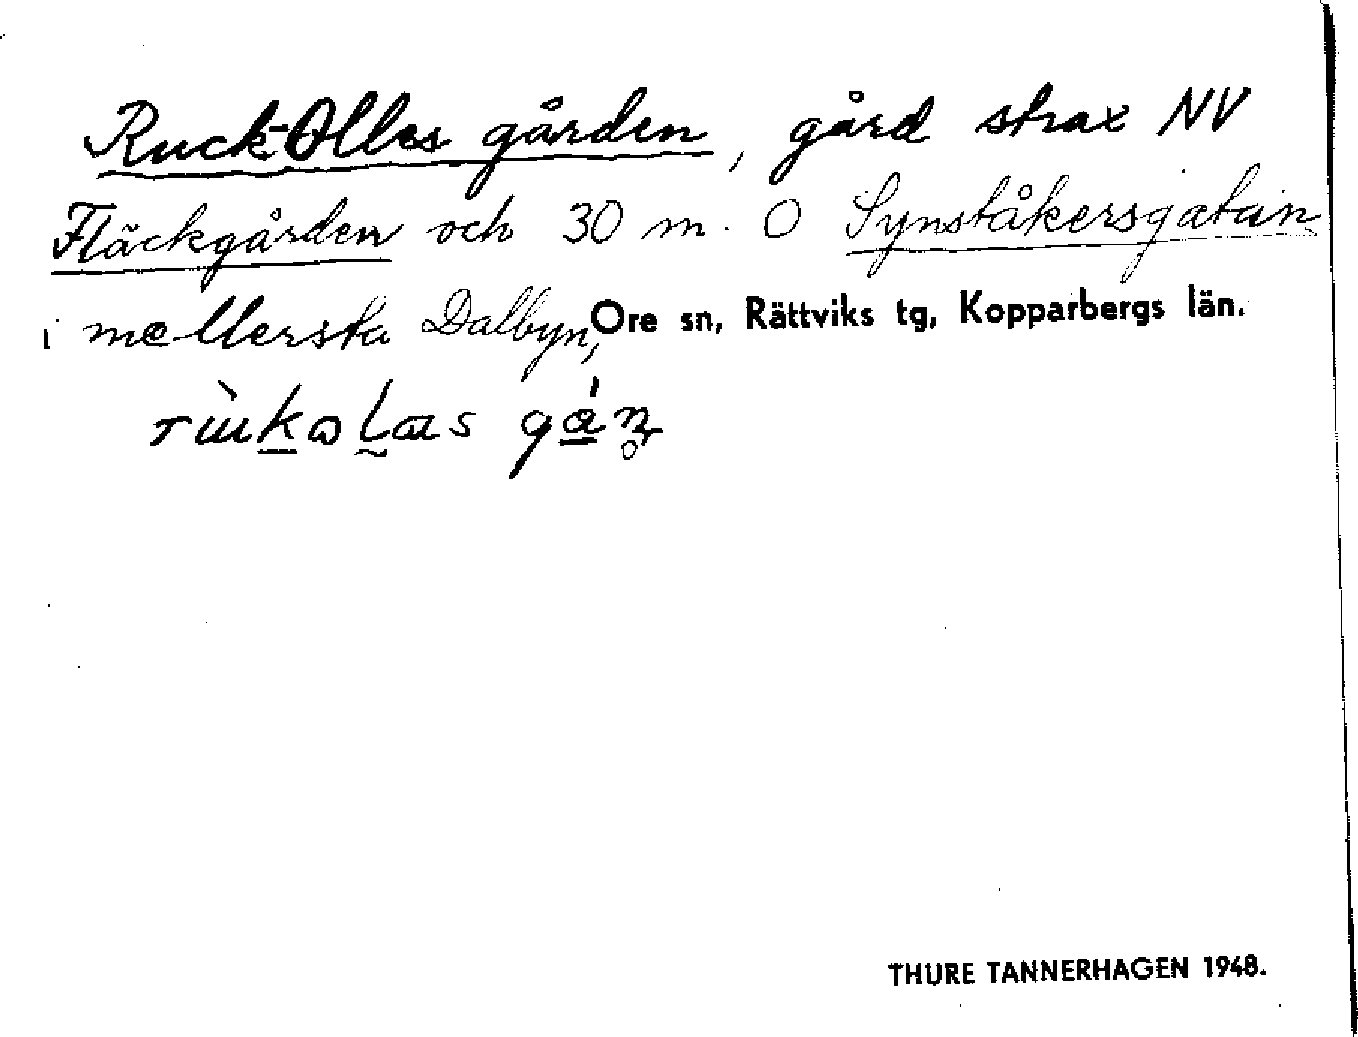 Ruck-Olles gården, gård strax NV
Fläckgården och 30 m. O Synståkersgatan
i mellersta Dalbyn, Ore sn, Rättviks tg, Kopparbergs län.
THURE TANNERHAGEN 1948.